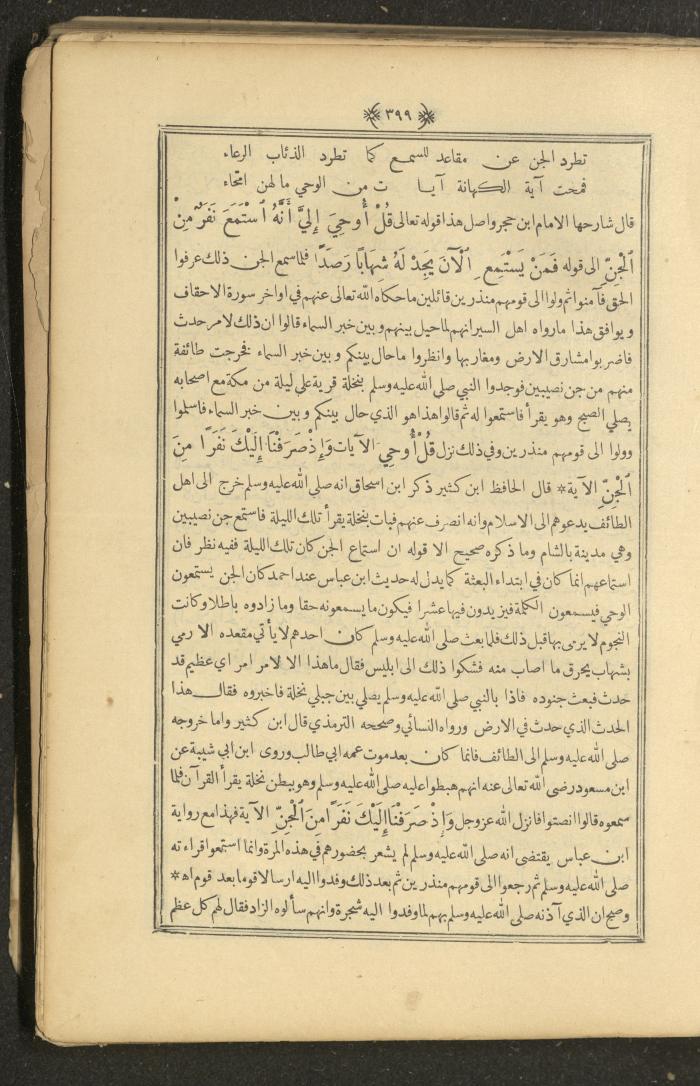 ٣٩٩
تطرد الجن عن مقاعد للسمع كما تطرد الذئاب الرعاء
فمحت آية الكهانة آيا ت من الوحي ما لهن امحاء
قال شارحها الامام ابن حجر واصل هذا قوله تعالى قُلْ أُوحِيَ إِلَيَّ أَنَّهُ ٱسْتَمَعَ نَفَرٌ مِنْ
ٱلْجِنِّ الى قوله فَمَنْ يَسْتَمِعِ ٱلْآنَ يَجِدْ لَهُ شِهَابًا رَصَدًا فلما سمع الجن ذلك عرفوا
الحق فآمنوا ثم ولوا الى قومهم منذرين قائلين ما حكاه الله تعالى عنهم في اواخر سورة الاحقاف
ويوافق هذا ما رواه اهل السير انهم لما حيل بينهم وبين خبر السماء قالوا ان ذلك لامر حدث
فاضربوا مشارق الارض ومغاربها وانظروا ما حال بينكم وبين خبر السماء فخرجت طائفة
منهم من جن نصيبين فوجدوا النبي صلى الله عليه وسلم بنخلة قرية على ليلة من مكة مع اصحابه
يصلي الصبح وهو يقرأ فاستمعوا له ثم قالوا هذا هو الذي حال بينكم وبين خبر السماء فاسلموا
وولوا الى قومهم منذرين وفي ذلك نزل قُلْ أُوحِيَ الآيات وَإِذْ صَرَفْنَا إِلَيْكَ نَفَرًا مِنَ
ٱلْجِنِّ الآية * قال الحافظ ابن كثير ذكر ابن اسحاق انه صلى الله عليه وسلم خرج الى اهل
الطائف يدعوهم الى الاسلام وانه انصرف عنهم فبات بنخلة يقرأ تلك الليلة فاستمع جن نصيبين
وهي مدينة بالشام وما ذكره صحيح الا قوله ان استماع الجن كان تلك الليلة ففيه نظر فان
استماعهم انما كان في ابتداء البعثة كما يدل له حديث ابن عباس عند احمد كان الجن يستمعون
الوحي فيسمعون الكلمة فيزيدون فيها عشرا فيكون ما يسمعونه حقا وما زادوه باطلا وكانت
النجوم لا يرمى بها قبل ذلك فلما بعث صلى الله عليه وسلم كان احدهم لا يأتي مقعده الا رمي
بشهاب يحرق ما اصاب منه فشكوا ذلك الى ابليس فقال ما هذا الا لامر امر اي عظيم قد
حدث فبعث جنوده فاذا بالنبي صلى الله عليه وسلم يصلي بين جبلي نخلة فاخبروه فقال هذا
الحدث الذي حدث في الارض ورواه النسائي وصححه الترمذي قال ابن كثير واما خروجه
صلى الله عليه وسلم الى الطائف فانما كان بعد موت عمه ابي طالب وروى ابن ابي شيبة عن
ابن مسعود رضي الله تعالى عنه انهم هبطوا عليه صلى الله عليه وسلم وهو ببطن نخلة يقرأ القرآن فلما
سمعوه قالوا انصتوا فانزل الله عز وجل وَإِذْ صَرَفْنَا إِلَيْكَ نَفَرًا مِنَ ٱلْجِنِّ الآية فهذا مع رواية
ابن عباس يقتضي انه صلى الله عليه وسلم لم يشعر بحضورهم في هذه المرة وانما استمعوا قراءته
صلى الله عليه وسلم ثم رجعوا الى قومهم منذرين ثم بعد ذلك وفدوا اليه ارسالا قوما بعد قوم اه *
وصح ان الذي آذنه صلى الله عليه وسلم بهم لما وفدوا اليه شجرة وانهم سألوه الزاد فقال لهم كل عظم